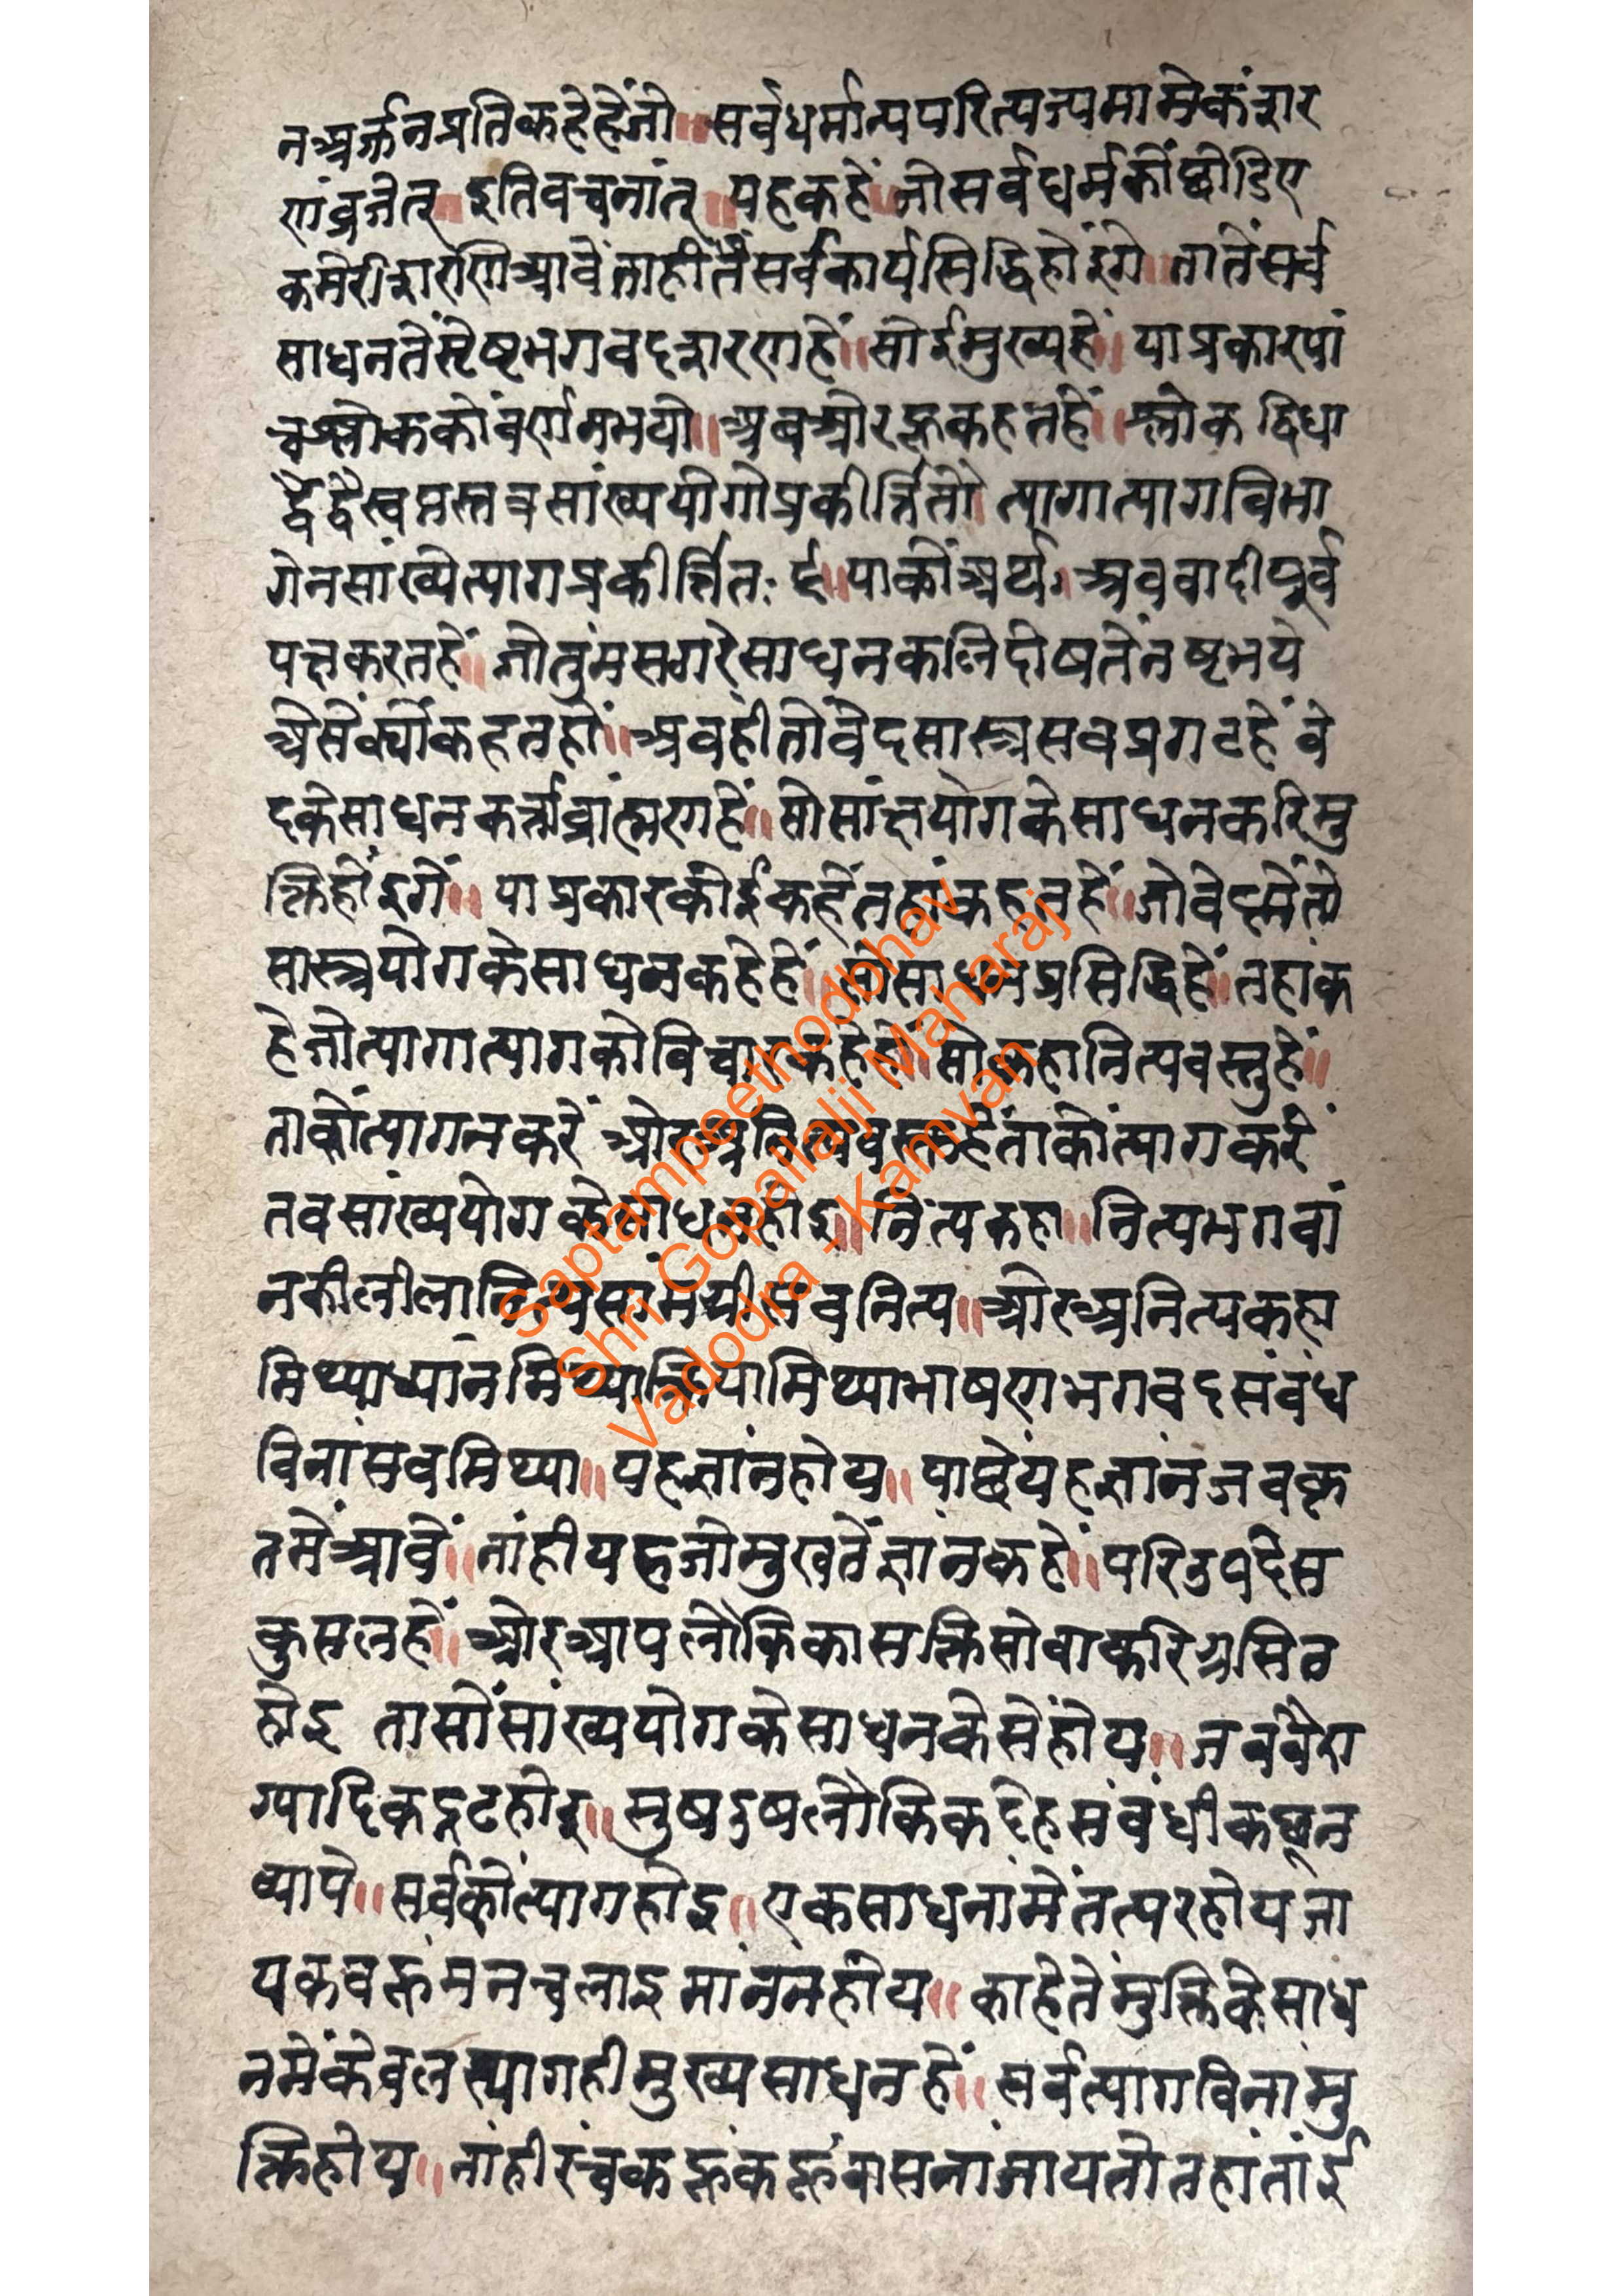 नअर्जनप्रतिकहेहेंजो॥ सर्वधर्मान्यपरित्यज्यमामेकंशर
णंव्रजेत्॥ इतिवचनांत्॥ यहकहें॥ जोसर्वधर्मकोंछोडिए
कमेरीशरणेआवेंताहीतेंसर्वकार्यसिद्धिहोंइगे॥ तातेंसर्व
साधनतेंस्रेष्टभगवदशरणहें॥ सोईमुख्यहें॥ याप्रकारपां
चश्लोककोंवर्णनभयो॥ अबओरहूकहतहें॥ श्लोक द्विधा
द्वेद्वैस्वमस्तत्रसांख्ययोगोप्रकीर्त्तितो त्यागात्यागविभा
गेनसांख्येत्यागप्रकीर्त्तितः ६॥ याकोंअर्थ॥ अबवादीपूर्व
पक्षकरतहें॥ जोतुमसगरेसाधनकलिदोषतेंनष्टभये
अेसेंक्योंकहतहों॥ अबहीतोवेदसास्त्रसबप्रगटहें वे
दकेसाधनकर्त्ताब्रांह्मणहें॥ सोसांक्षयोगकेसाधनकरिमु
क्तिहोंइगें॥ याप्रकारकोईकहेंतहांकहतहें॥ जोवेदमेंतो
सास्त्रयोगकेसाधनकहेहें॥ सोसाधनप्रसिद्धिहें॥ तहांक
हेजोत्यागात्यागकोविचारकहेहें॥ सोकहानित्यवस्तुहें॥
ताकोंत्यागनकरें ओरअनित्यवस्तुहेंताकोंत्यागकरें
तबसांख्ययोगकेसाधनहोइ॥ नित्यकहा॥ नित्यभगवां
नकीलीलानित्यसांमग्रीसबनित्य॥ ओरअनित्यकहा
मिथ्याध्यानमिथ्याक्रियामिथ्याभाषणभगवदसंबंध
विनांसबमिथ्या॥ यहज्ञांनहोय॥ पाछेंयहज्ञांनजबकृ
तमेंआवें॥ नांहीयहजोमुखतेंज्ञानकहें॥ परिउपदेस
कुसलहों॥ ओरआपलौकिकासक्तिसोवाकरिग्रसित
होइ तासोंसांख्ययोगकेसाधनकेसेंहोय॥ जबवैरा
ग्यादिकद्रढहोइ॥ सुषदुषलौकिकदेहसंबंधीकछून
व्यापे॥ सर्वकोंत्यागहोइ॥ एकसाधनांमेंतत्परहोयजा
यकबहूमनचलाइमांननहोय॥ काहेतेंमुक्तिकेसाध
नमेंकेवलत्यागहीमुख्यसाधनहें॥ सर्वत्यागविनांमु
क्तिहोय॥ नांहीरंचकहूकहूंवासनांजायतोतहांतांई
Saptampeethodbhav
Shri Gopallalji Maharaj
Vadodra - Kamvan